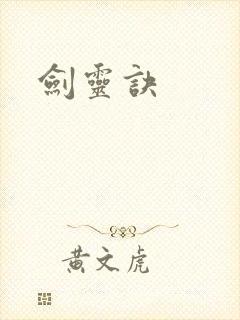 劍靈訣
黃文虎